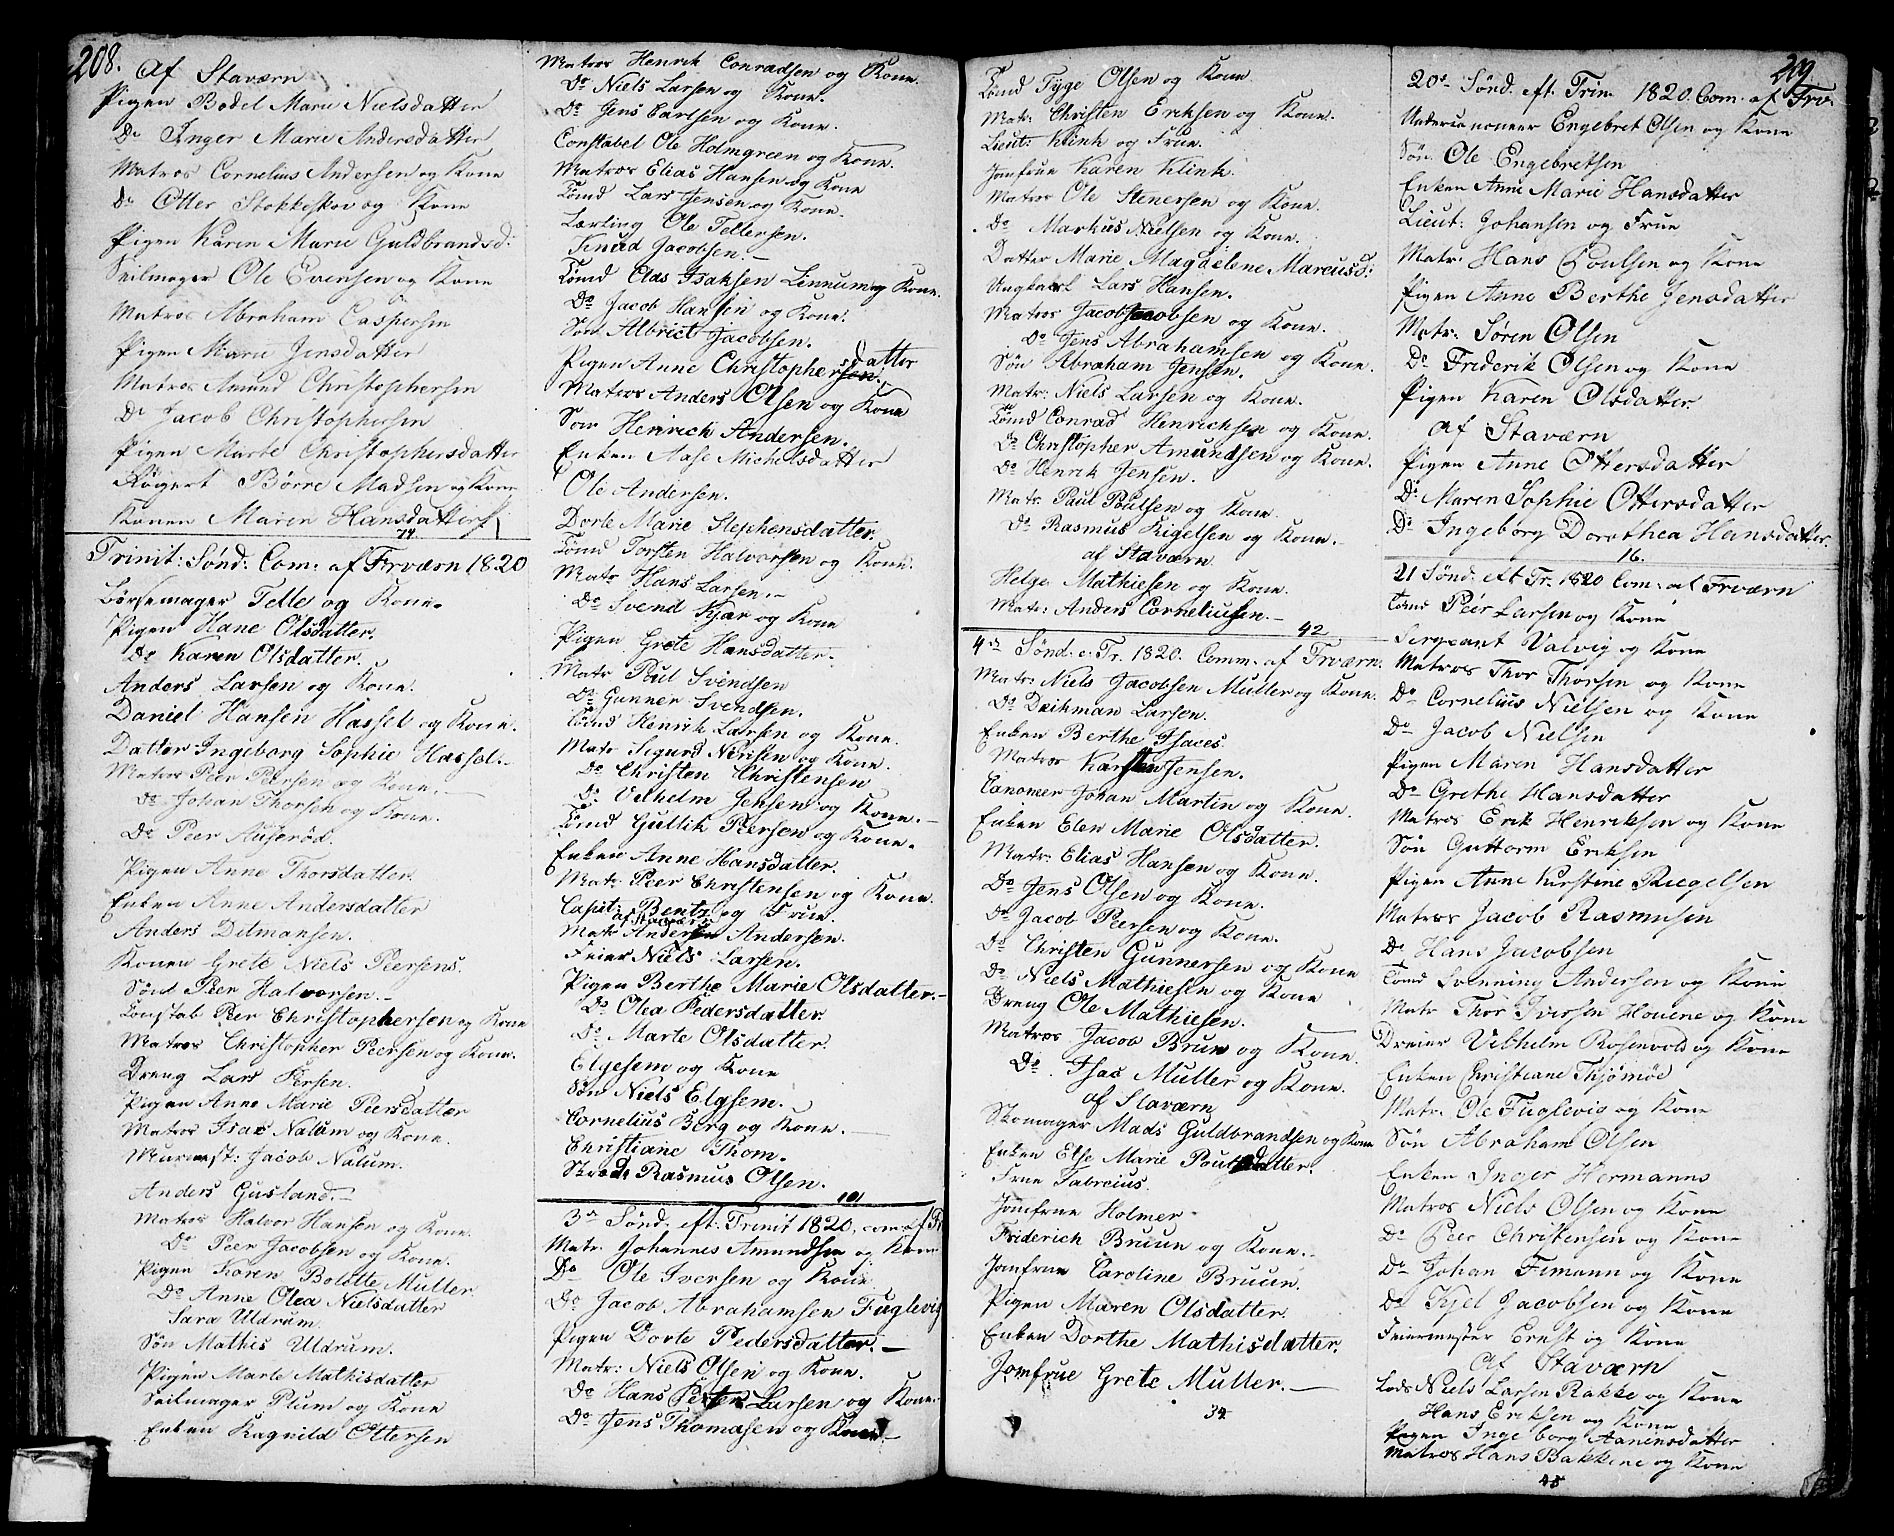 208.
Af Staværn
Pigen Bodel Marie Nielsdatter
Do Inger Marie Andersdatter
Matros Cornelius Andersen og Kone
Do Otter Stokkeskov og Kone
Pigen Karen Marie Guldbrandsd:
Seilmager Ole Evensen og Kone
Matros Abraham Caspersen
Pigen Marie Jensdatter
Matros Amund Christophersen
Do Jacob Christophersen
Pigen Marte Christophersdatter
Børre Madsen og Kone
Konen Maren Hansdatter
74
Trinit: Sønd: Com: af Frværn 1820
Børsemager Telle og Kone.
Pigen Hane Olsdatter.
Do Karen Olsdatter.
Anders Larsen og Kone.
Daniel Hansen Hassel og Kone.
Datter Ingeborg Sophie Hassel.
Matros Peer Peersen og Kone.
Do Johan Thorsen og Kone.
Do Peer Huserød.
Pigen Anne Thorsdatter.
Enken Anne Andersdatter
Anders Ditmansen.
Konen Grete Niels Peersens.
Peer Halvorsen.
Constab Peer Christophersen og Kone
Matros Christopher Peersen og Kone.
Dreng Lars Persen.
Pigen Anne Marie Peersdatter
Matros Isac Nalum og Kone.
Murmst: Jacob Nalum.
Anders Gusland.
Matros Halvor Hansen og Kone.
Do Peer Jacobsen og Kone.
Pigen Karen Bolette Muller
Do Anne Olea Nielsdatter
Sara Uldrum.
Søn Mathis Uldrum.
Pigen Marte Mathisdatter
Seilmager Plum og Kone
Enken Ragnild Ottersen
Matros Henrik Conradsen og Kone.
Do Niels Larsen og Kone.
Do Jens Carlsen og Kone.
Constabel Ole Holmgreen og Kone.
Matros Elias Hansen og Kone
Tømd Lars Jensen og Kone.
Lærling Ole Tellersen.
Knud Jacobsen.
Tømd Clas Isaksen Linnum og Kone.
Do Jacob Hansen og Kone.
Søn Albrict Jacobsen.
Pigen Anne Christophersdatter
Matros Anders Olsen og Kone
Søn Henrich Andersen.
Enken Aase Michelsdatter
Ole Andersen.
Dorte Marie Stephensdatter
Tømd Torsten Halvorsen og Kone.
Matr Hans Larsen.
Do Svend Kjær og Kone
Pigen Grete Hansdatter.
Matr Poul Svendsen
Do Gunner Svendsen.
Tømd Henrik Larsen og Kone.
Matr Sigurd Nerisen og Kone.
Do Christen Christensen
Do Velhelm Jensen og Kone.
Tømd Gullik Peersen og Kone.
Enken Anne Hansdatter.
Matr Peer Christensen og Kone.
Capit: Bentz og Frue.
af Staværn
Matr Anders Andersen.
Feier Niels Larsen.
Pigen Berthe Marie Olsdatter.
Do Olea Pedersdatter
Do Marte Olsdatter.
Elgesem og Kone
Søn Niels Elgsem.
Cornelius Berg og Kone.
Christiane Thom.
Rasmus Olsen.
101
3die Sønd. eft. Trinit 1820, com. af Fr
Matr. Johannes Amundsen og Kone
Do Ole Iversen og Kone
Do Jacob Abrahamsen Fuglevig
Pigen Dorte Pedersdatter.
Matr: Niels Olsen og Kone.
Do Hans Larsen og Kone.
Do Jens Thomasen og Kone
Tømd Tyge Olsen og Kone
Matr: Christen Eriksen og Kone.
Lieut: Klink og Frue.
Jomfrue Karen Klink.
Matros Ole Stenersen og Kone.
Do Markus Nielsen og Kone.
Datter Marie Magdelene Marcusd:
Ungkarl Lars Hansen.
Matros Jacob Jacobsen og Kone.
Do Jens Abrahamsen og Kone.
Søn Abraham Jensen.
Matr: Niels Larsen og Kone.
Tømd Conrad Henrichsen og Kone.
Do Christopher Amundsen og Kone.
Do Henrik Jensen.
Matr: Paul Poulsen og Kone.
Do Rasmus Rigelsen og Kone.
af Staværn
Helge Mathiesen og Kone.
Matr: Anders Corneliusen.
42
4de Sønd. e. Tr. 1820. Comm. af Frværn.
Matr: Niels Jacobsen Muller og Kone.
Do Deikman Larsen.
Enken Berthe Isaces.
Matros Karsten Jensen.
Canoneer Johan Martin og Kone.
Enken Elen Marie Olsdatter.
Matr: Elias Hansen og Kone.
Do Jens Olsen og Kone.
Do Jacob Peersen og Kone.
Do Christen Gunnersen og Kone
Do Niels Mathiesen og Kone
Dreng Ole Mathiesen.
Matros Jacob Brun og Kone.
Do Isac Muller og Kone.
af Staværn
Skomager Mads Guldbrandsen og Kone
Enken Else Marie Poulsdatter.
Frue Fabreius.
Jomfrue Holmer
Friderich Bruun og Kone.
Jomfrue Caroline Bruun.
Pigen Maren Olsdatter.
Enken Dorthe Mathisdatter.
Jomfrue Grete Muller.
34
209.
20de Sønd. eft. Trin. 1820. Com. af Frv.
Undercanoneer Engebret Olsen og Kone
Søn Ole Engebretsen
Enken Anne Marie Hansdatter
Lieut: Johansen og Frue
Matr: Hans Poulsen og Kone
Pigen Anne Berthe Jensdatter
Matr: Søren Olsen
Do Friderik Olsen og Kone
Pigen Karen Olsdatter.
af Staværn
Pigen Anne Ottersdatter
Do Maren Sophie Ottersdatter
Do Ingeborg Dorothea Hansdatter.
16.
21 Sønd. eft Tr. 1820 Com: af Frværn
Tømd Peer Larsen og Kone
Sergeant Valvig og Kone
Matros Thor Thorsen og Kone
Do Cornelius Nielsen og Kone
Do Jacob Nielsen
Pigen Maren Hansdatter
Do Grethe Hansdatter
Matros Erik Henriksen og Kone
Søn Guttorm Eriksen
Pigen Anne Kirstine Riegelsen
Matros Jacob Rasmusen
Do Hans Jacobsen
Tømd Svenning Andersen og Kone
Matr Thor Iversen Hovene og Kone
Dreier Vilhelm Rosenvold og Kone
Enken Christiane Thjømøe
Matr. Ole Fuglevig og Kone
Søn Abraham Olsen
Enken Inger Hermanns
Matros Niels Olsen og Kone
Do Peer Christensen og Kone
Do Johan Timann og Kone
Do Kjel Jacobsen og Kone
Feiermester Ernst og Kone
Af Staværn
Lods Niels Larsen Rakke og Kone
Hans Eriksen og Kone
Pigen Ingeborg Aanensdatter
Matros Hans Bakkene og Kone
45